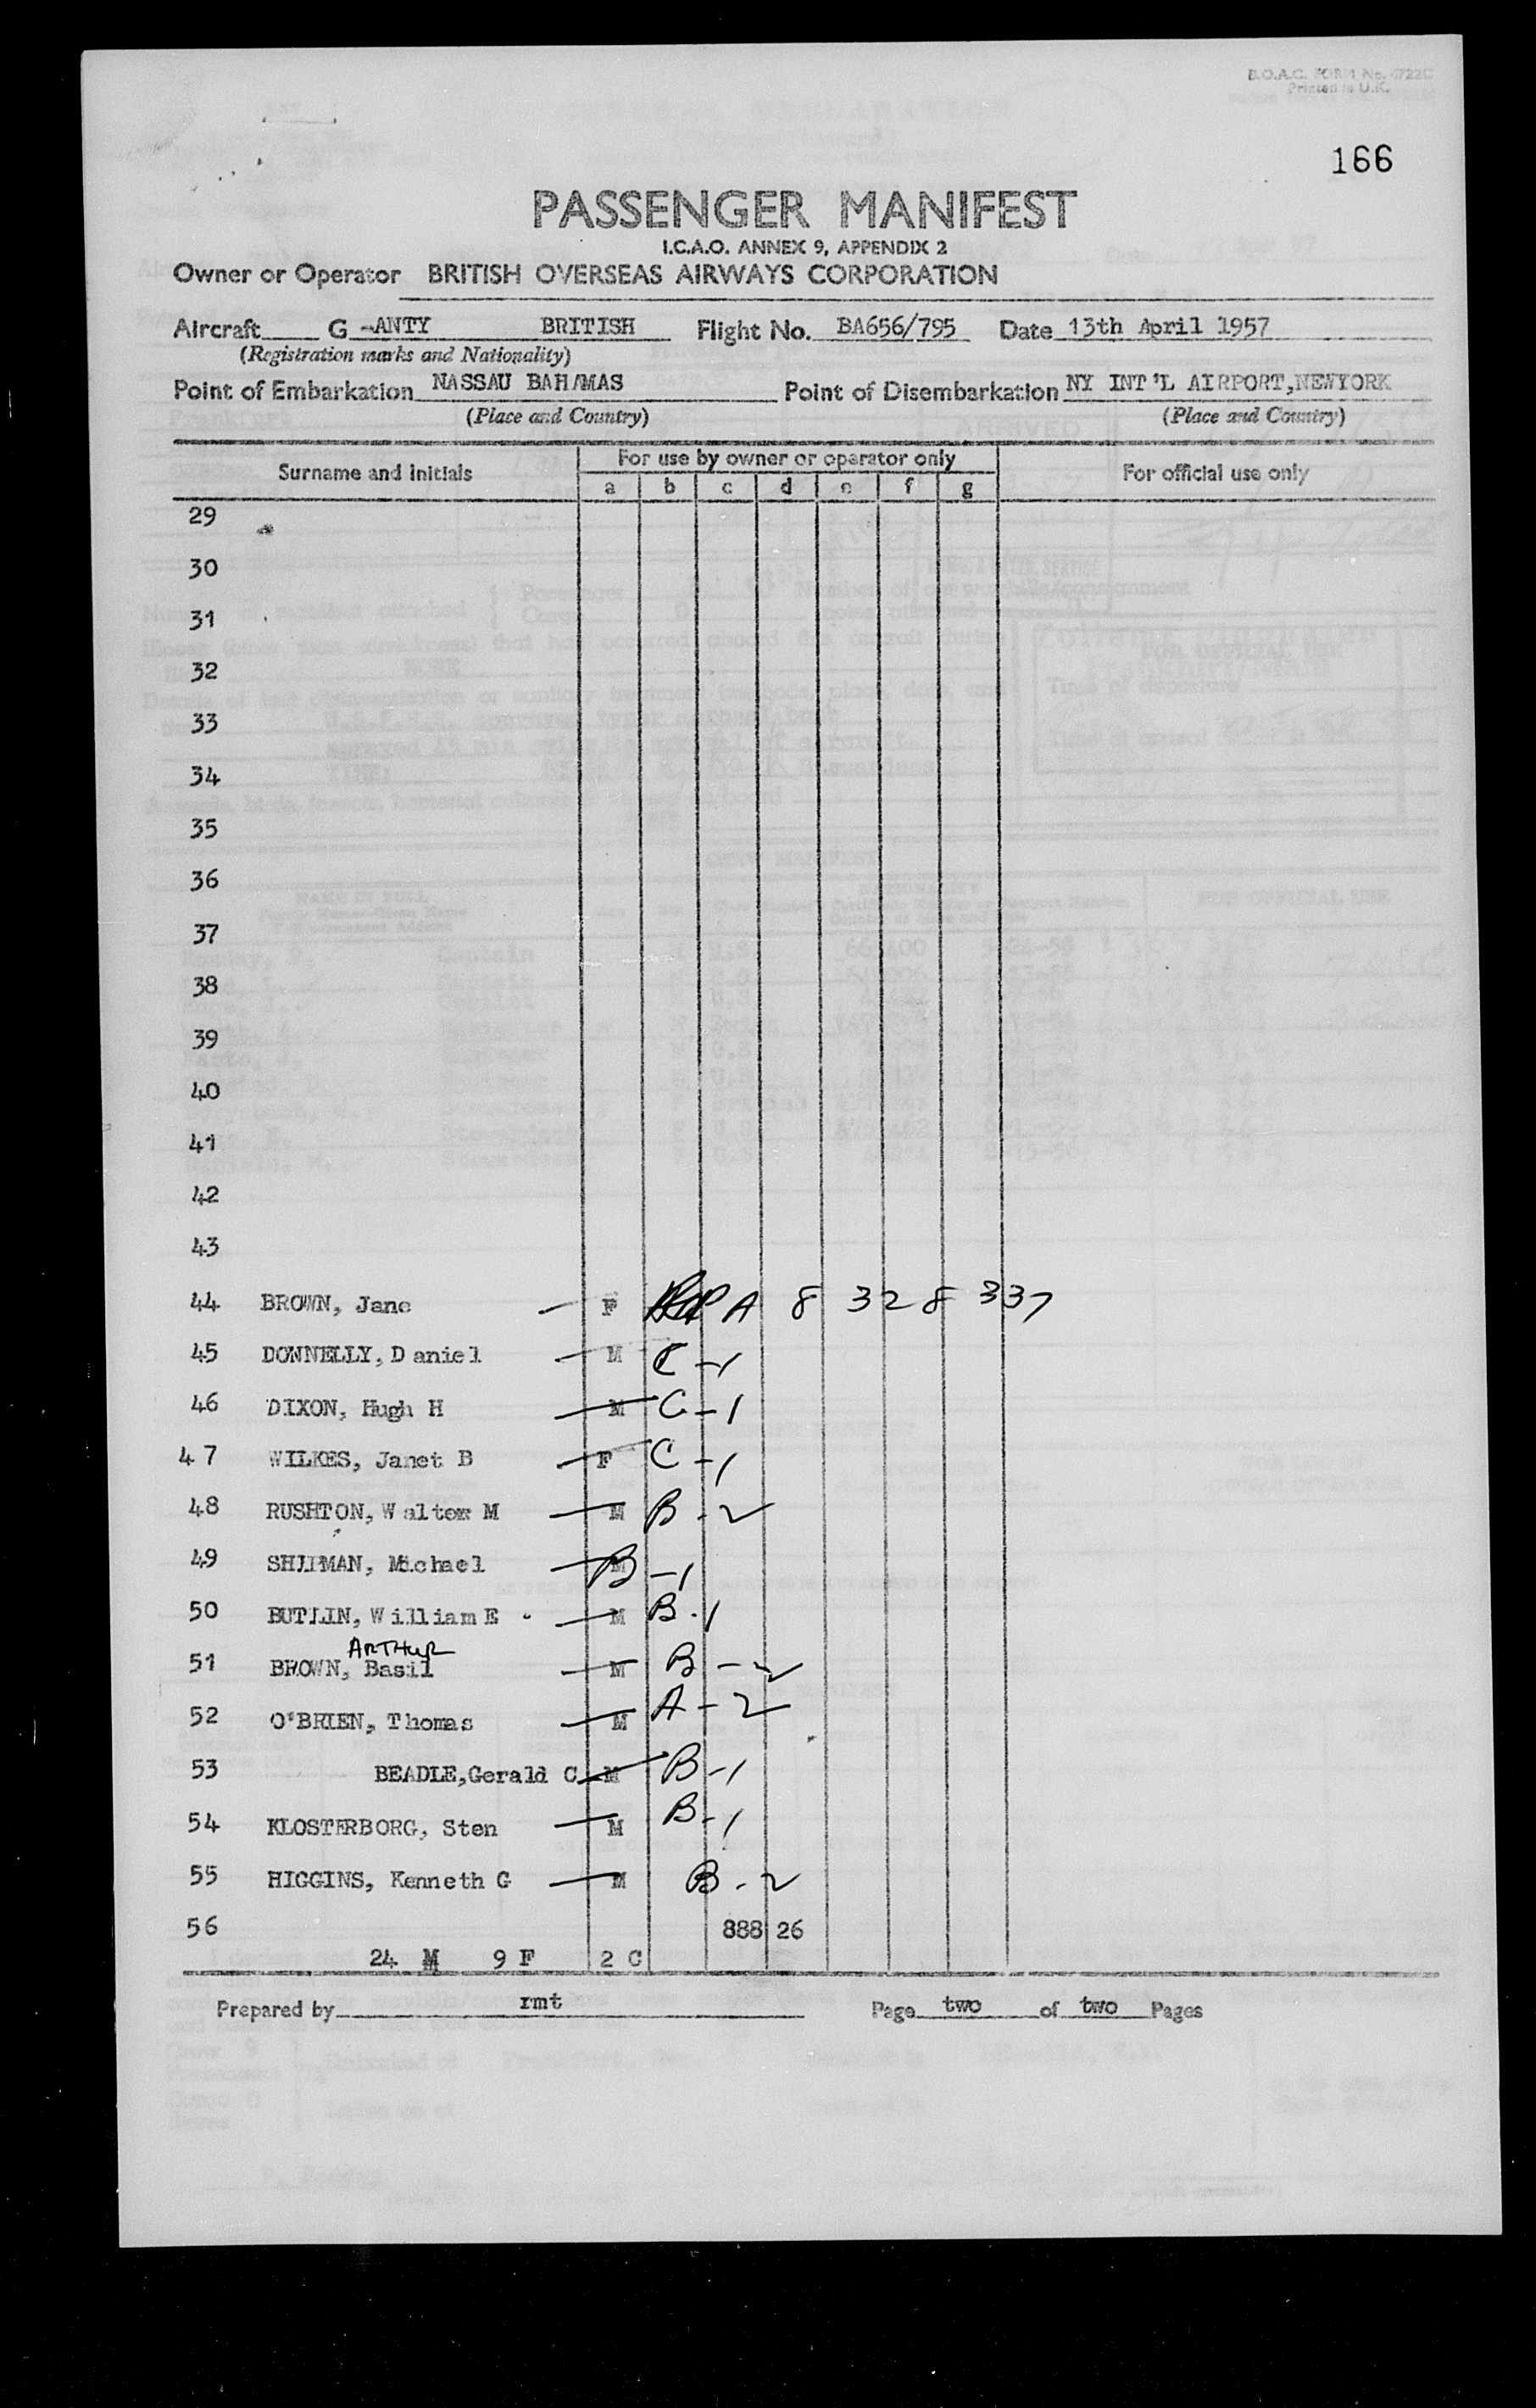 B.O.A.C. FORM No. 4722C
Printed in U.K.
166
PASSENGER MANIFEST
I.C.A.O. ANNEX 9, APPENDIX 2
Owner or Operator BRITISH OVERSEAS AIRWAYS CORPORATION
Aircraft G -ANTY BRITISH Flight No. BA656/795 Date 13th April 1957
(Registration marks and Nationality)
Point of Embarkation NASSAU BAHAMAS Point of Disembarkation NY INT'L AIRPORT,NEWYORK
(Place and Country) (Place and Country)
Surname and initials For use by owner or operator only For official use only
a b c d e f g
29
30
31
32
33
34
35
36
37
38
39
40
41
42
43
44 BROWN, Jane F A 8 328 337
45 DONNELLY, Daniel M C-1
46 DIXON, Hugh H M C-1
47 WILKES, Janet B F C-1
48 RUSHTON, Walter M M B-2
49 SHIPMAN, Michael M B-1
50 BUTLIN, William E M B-1
ARTHUR
51 BROWN, Basil M B-2
52 O'BRIEN, Thomas M A-2
53 BEADLE,Gerald C M B-1
54 KLOSTERBORG, Sten M B-1
55 HIGGINS, Kenneth G M B-2
56 888 26
24 M 9 F 2 C
Prepared by rmt Page two of two Pages